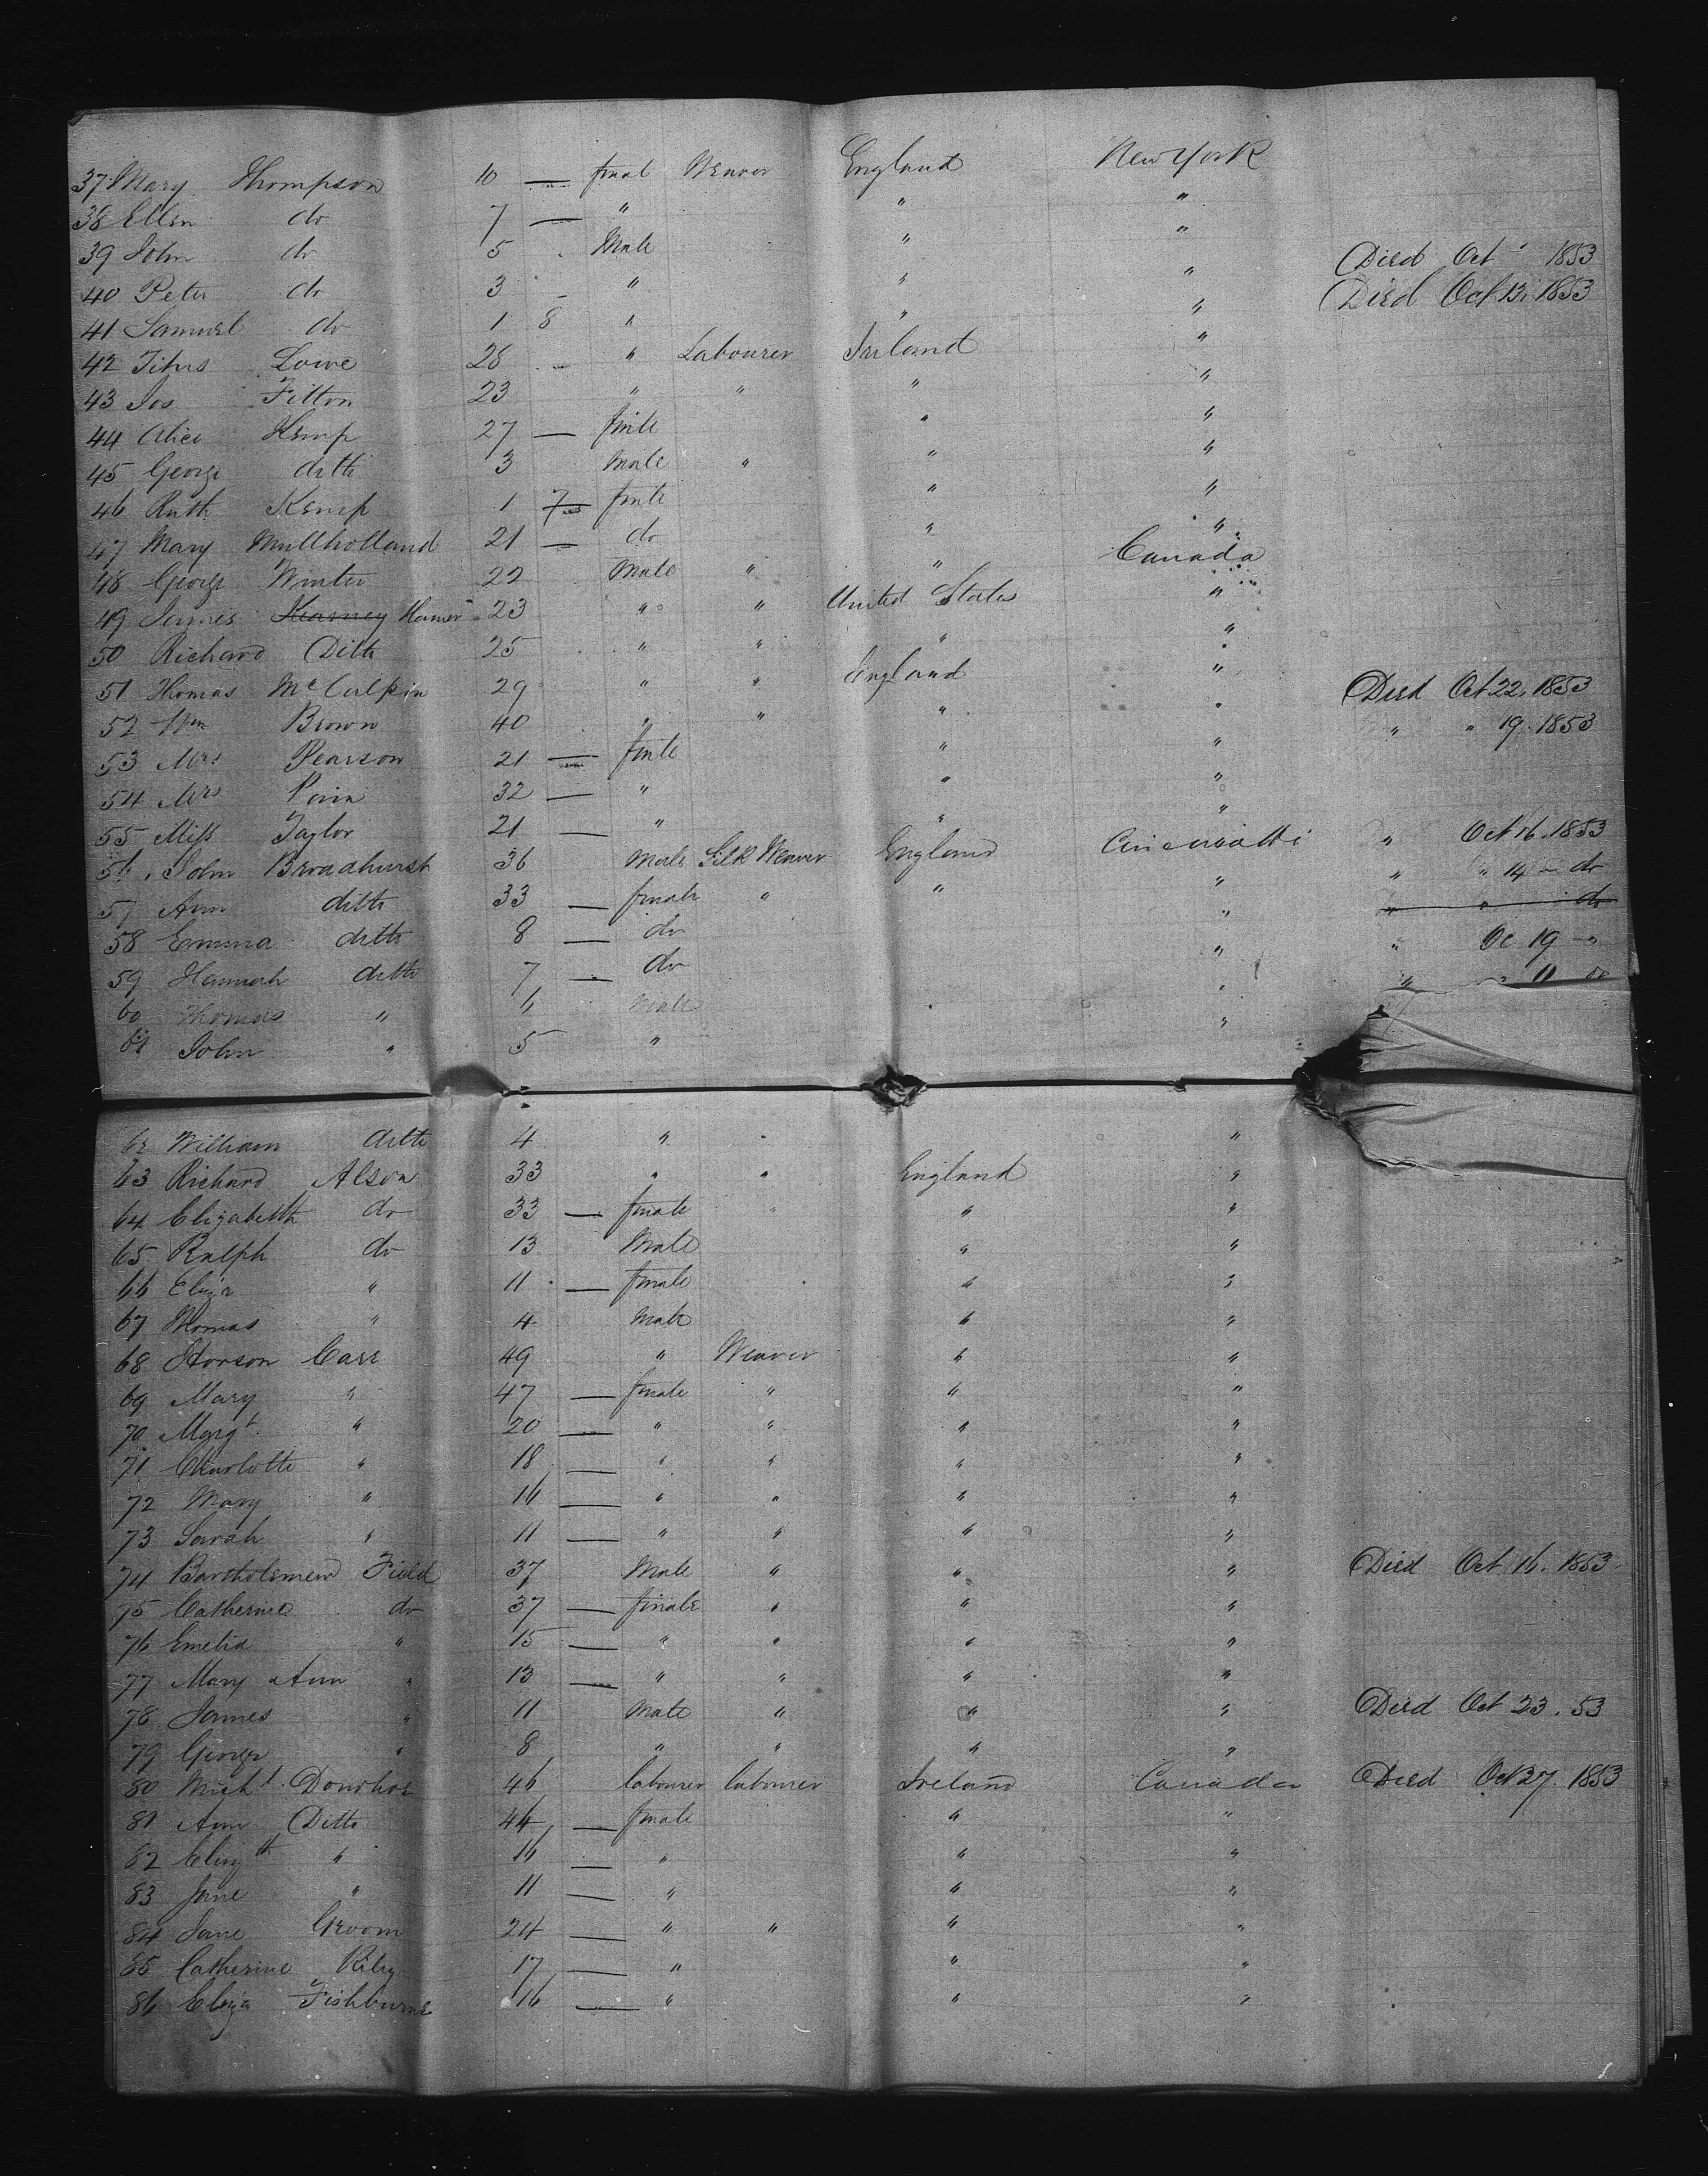 37 Mary Thompson 10 — fmal Weaver England New York
38 Ellen do 7 — " " "
39 John do 5 Male " "
40 Peter do 3 " " " Died Oct 1853
41 Samuel do 1 8 " " " Died Oct 13. 1853
42 Titus Lowe 28 " Labourer Irland "
43 Jos Fitton 23 " " " "
44 Alice Kemp 27 — fmle " "
45 George ditto 3 Male " " "
46 Ruth Kemp 1 7 fmle " "
47 Mary Mullholland 21 — do " "
48 George Winter 22 Male " " Canada
49 James Kearney Hamer 23 " " United States "
50 Richard Ditto 25 " " " "
51 Thomas McCalpin 29 " " England "
52 Wm Brown 40 " " " " Died Oct 22. 1853
53 Mrs Pearson 21 — fmle " " " " 19. 1853
54 Mrs 32 — " " "
55 Miss Taylor 21 — " " "
56 John Broadhurst 36 Male Silk Weaver England Cincinatti " Oct 16. 1853
57 Ann ditto 33 — female " " " " " 14 — do
58 Emma ditto 8 — do " " " do
59 Hannah ditto 7 — do " " Oc 19 — "
60 Thomas " 6 Male " " " 11 do
61 John " 5 " "
62 William ditto 4 " "
63 Richard Alson 33 " " England "
64 Elizabeth do 33 — fmale " " "
65 Ralph do 13 Male " "
66 Eliza " 11 — fmale " "
67 Thomas " 4 Male " "
68 Horson Carr 49 " Weaver " "
69 Mary " 47 — fmale " " "
70 Margt. " 20 — " " " "
71 Charlotte " 18 — " " " "
72 Mary " 16 — " " " "
73 Sarah " 11 — " " " "
74 Bartholemew Field 37 Male " " " Died Oct. 16. 1853
75 Catherine do 37 — fmale " " "
76 Emelia " 15 — " " " "
77 Mary Ann " 13 — " " " "
78 James " 11 Male " " " Died Oct 23. 53
79 George " 8 " " " "
80 Michl. Donohoe 46 labourer labourer Ireland Canada Died Oct 27. 1853
81 Ann Ditto 44 — fmale " "
82 Elizth " 16 — " " "
83 Jane " 11 — " " "
84 Jane Groom 24 — " " " "
85 Catherine Riley 17 — " " "
86 Eliza Fishburne 16 — " " "